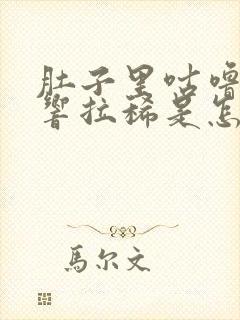 肚子里咕噜
响拉稀是怎
馬尔文